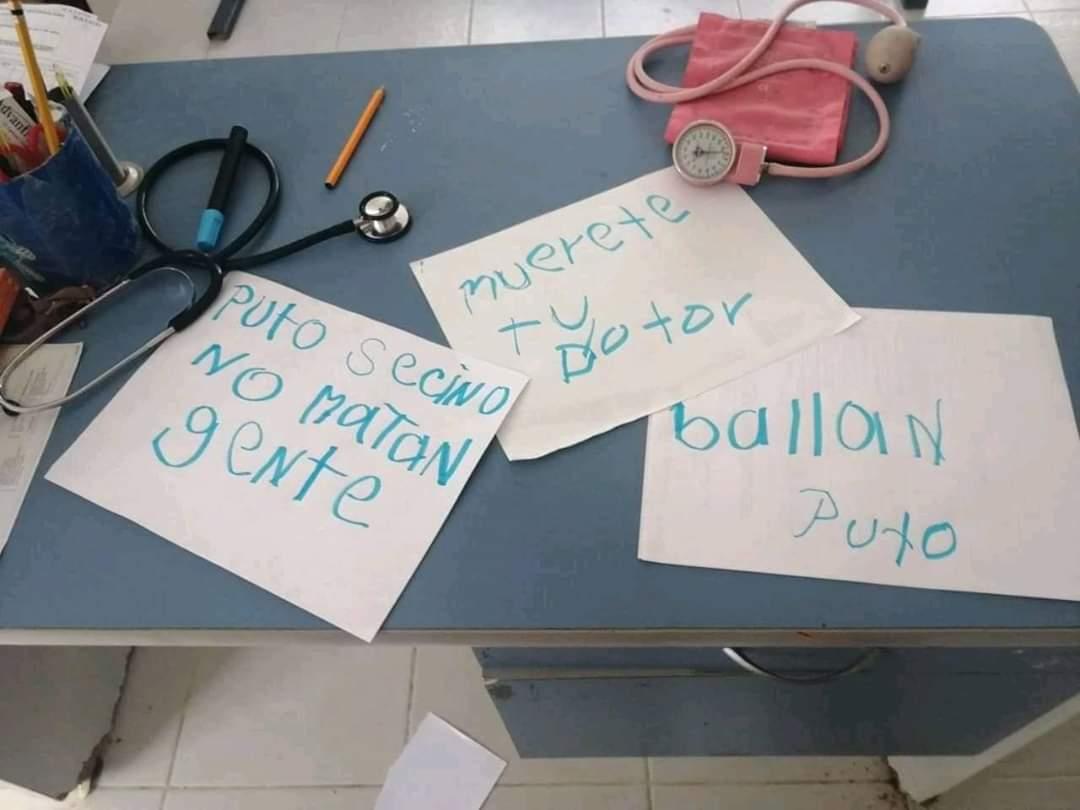 Advant
PUtO SeciNO
NO MATAN
geNte
muerete
tU
DOtOr
ballaN
PUtO